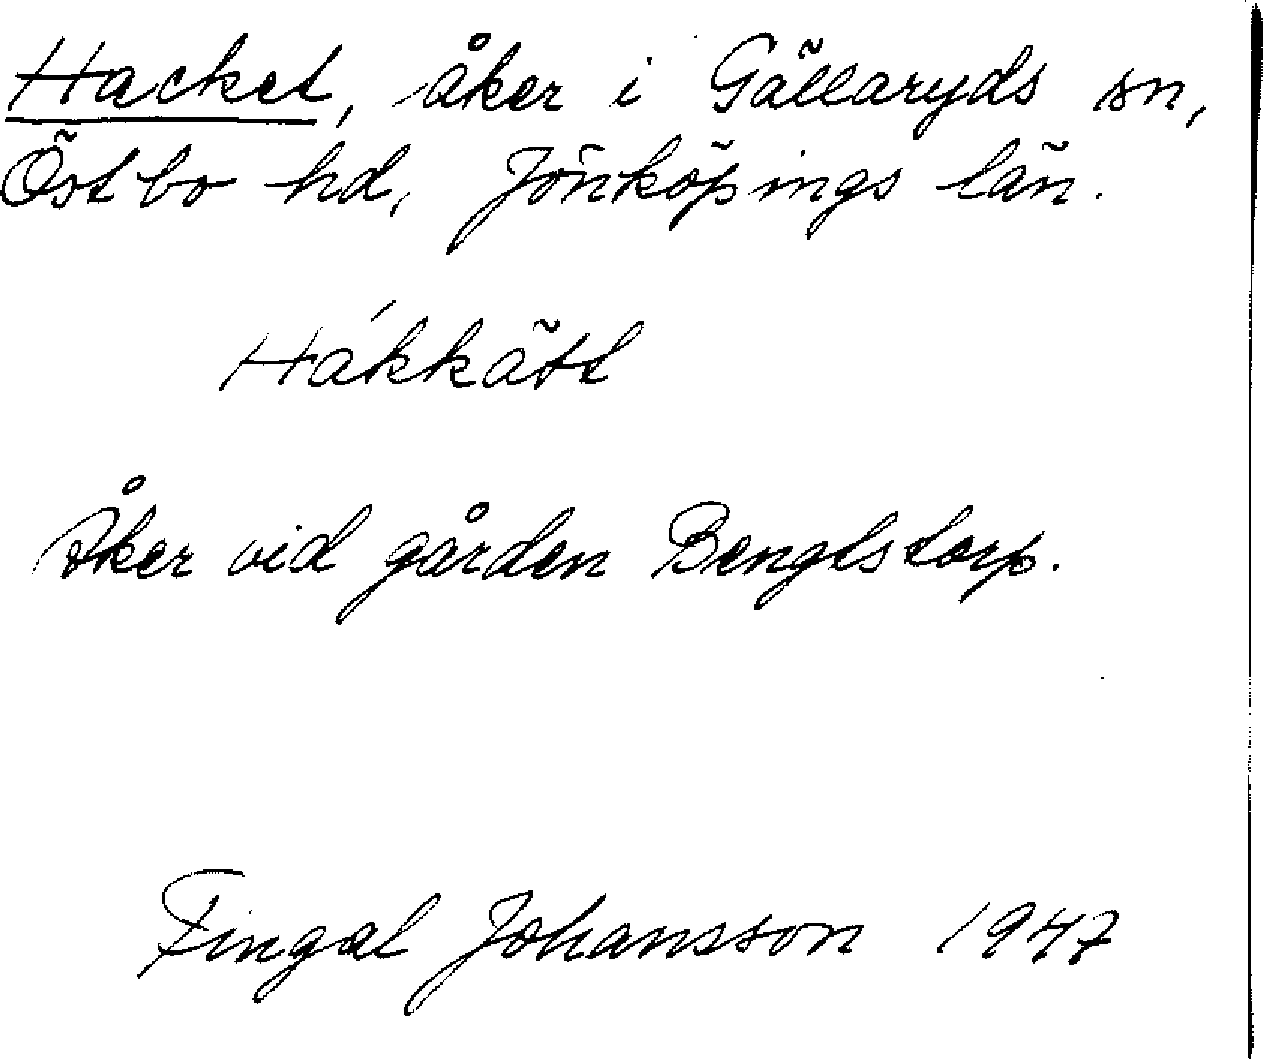 Hacket, åker i Gällaryds sn,
Östbo hd, Jönköpings län.
Hákkätt
Åker vid gården Bengtstorp.
Fingal Johansson 1947